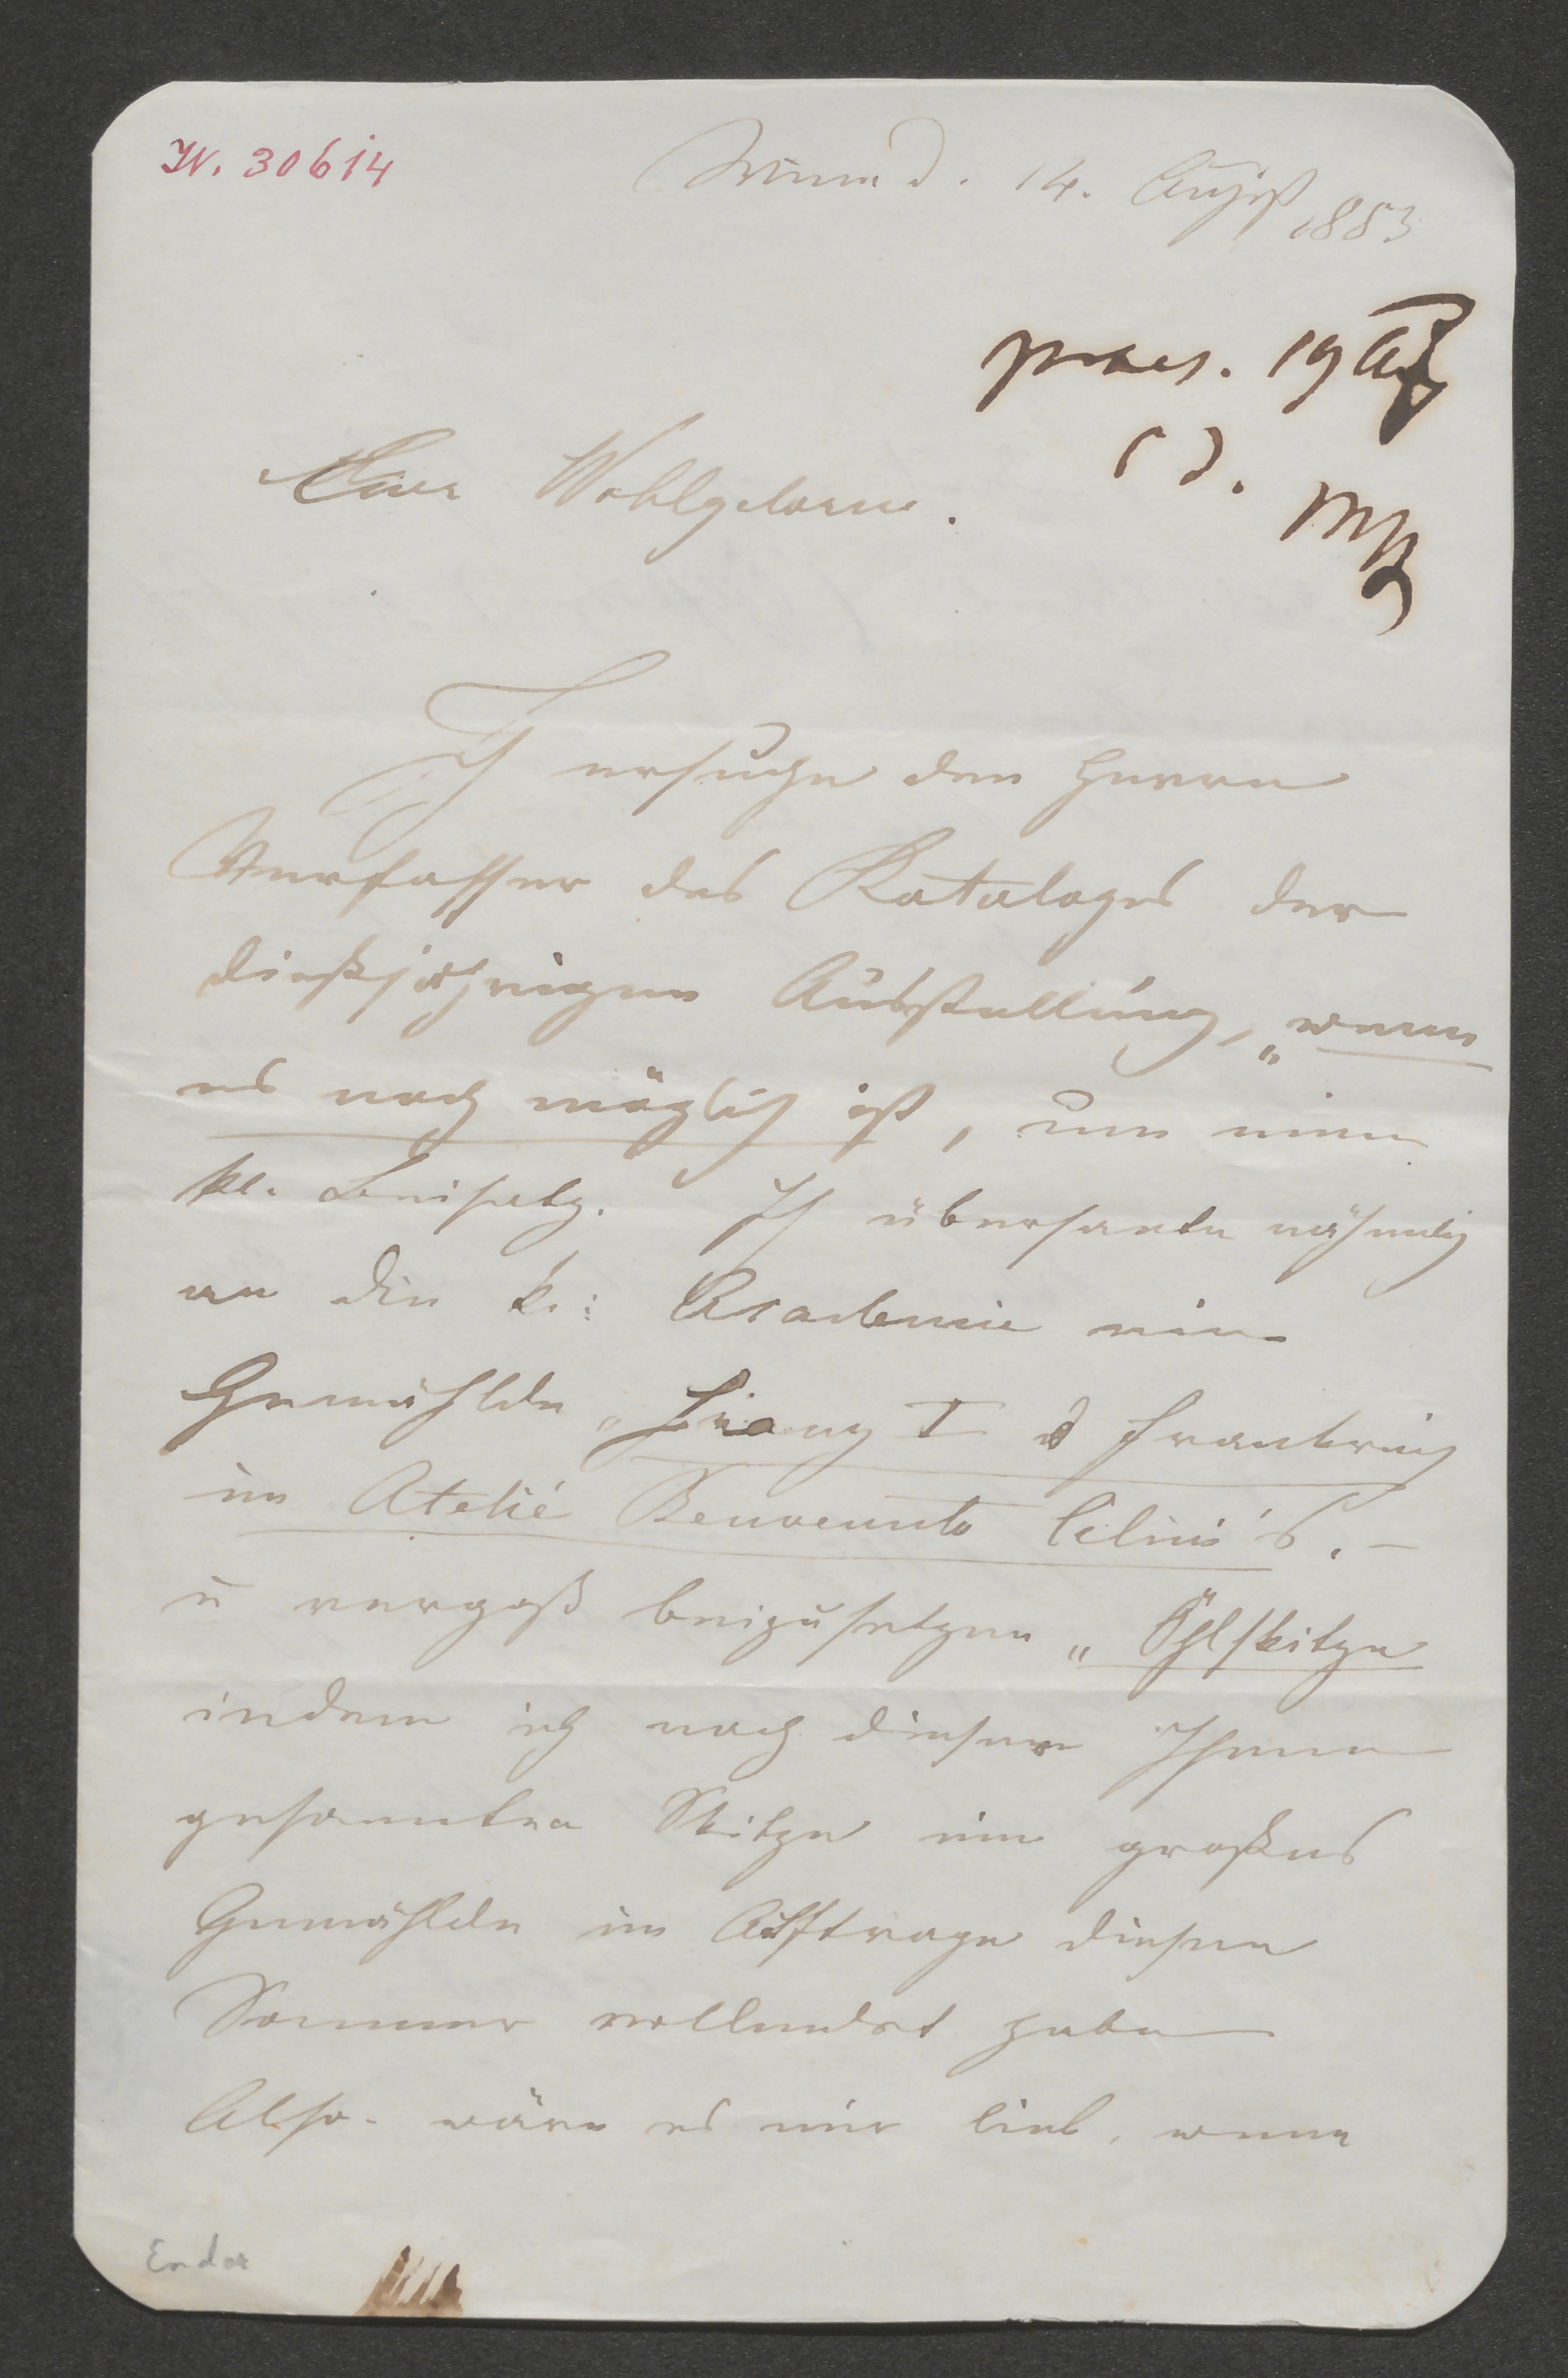 IN. 30614
Wien d. 14. August 1853
praes. 19 Aug
53.
Euer Wohlgeboren.
Ich ersuche den Herren
Verfasser des Kataloges der
dießjährigen Ausstellung, „wenn
es noch möglich ist, um einen
kl. Beisatz. Ich übersante nähmlig
an die k: Academie ein
Gemählde „Franz I v Frankreich
im Atelié Benvenuto Celini's. –
u vergaß beizusetzen „Öhlskitze
indem ich nach dieser Ihnen
gesannten Skitze ein großes
Gemählde im Auftrage diesen
Sommer vollendet habe
Also wäre es mir lieb, wenn
Ender